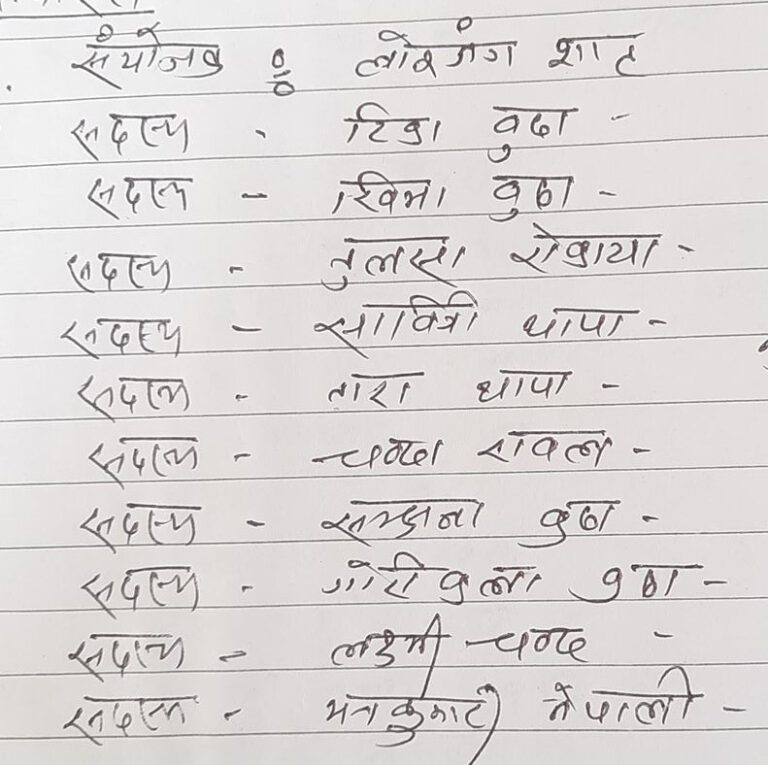 संयोजक : लोकजंग शाह
सदस्य - टिका बुढा -
सदस्य - खिमा बुढा -
सदस्य - तुलसा रोकाया -
सदस्य - सावित्री थापा -
सदस्य - तारा थापा -
सदस्य - चन्दा रावल -
सदस्य - सम्झना बुढा -
सदस्य - गोरीकला बुढा -
सदस्य - लक्ष्मी चन्द -
सदस्य - मनकुमारी नेपाली -